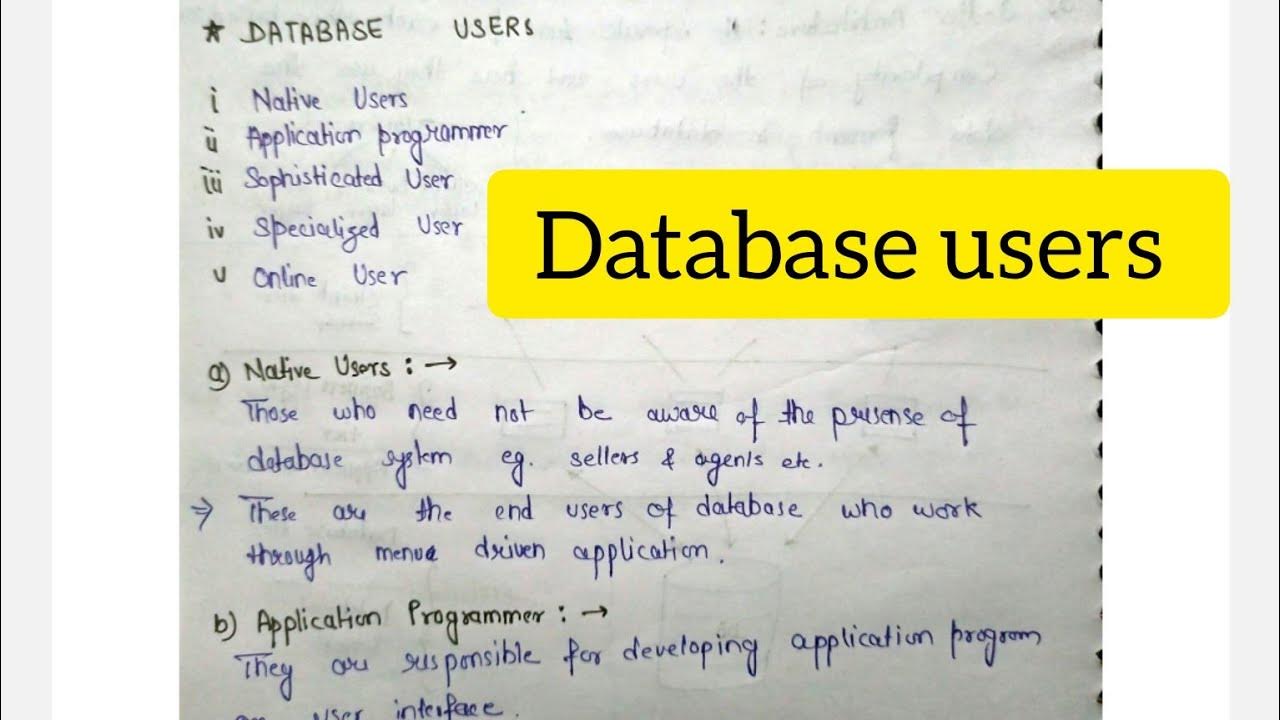 ★ DATABASE USERS
i Native Users
ii Application programmer
iii Sophisticated User
iv Specialized User
v Online User
Database users
a) Native Users : →
Those who need not be aware of the prusense of
database system eg. sellers & agents etc.
⇒ These are the end users of database who work
through menue driven application.
b) Application Programmer : →
They are responsible for developing application program
user interface.